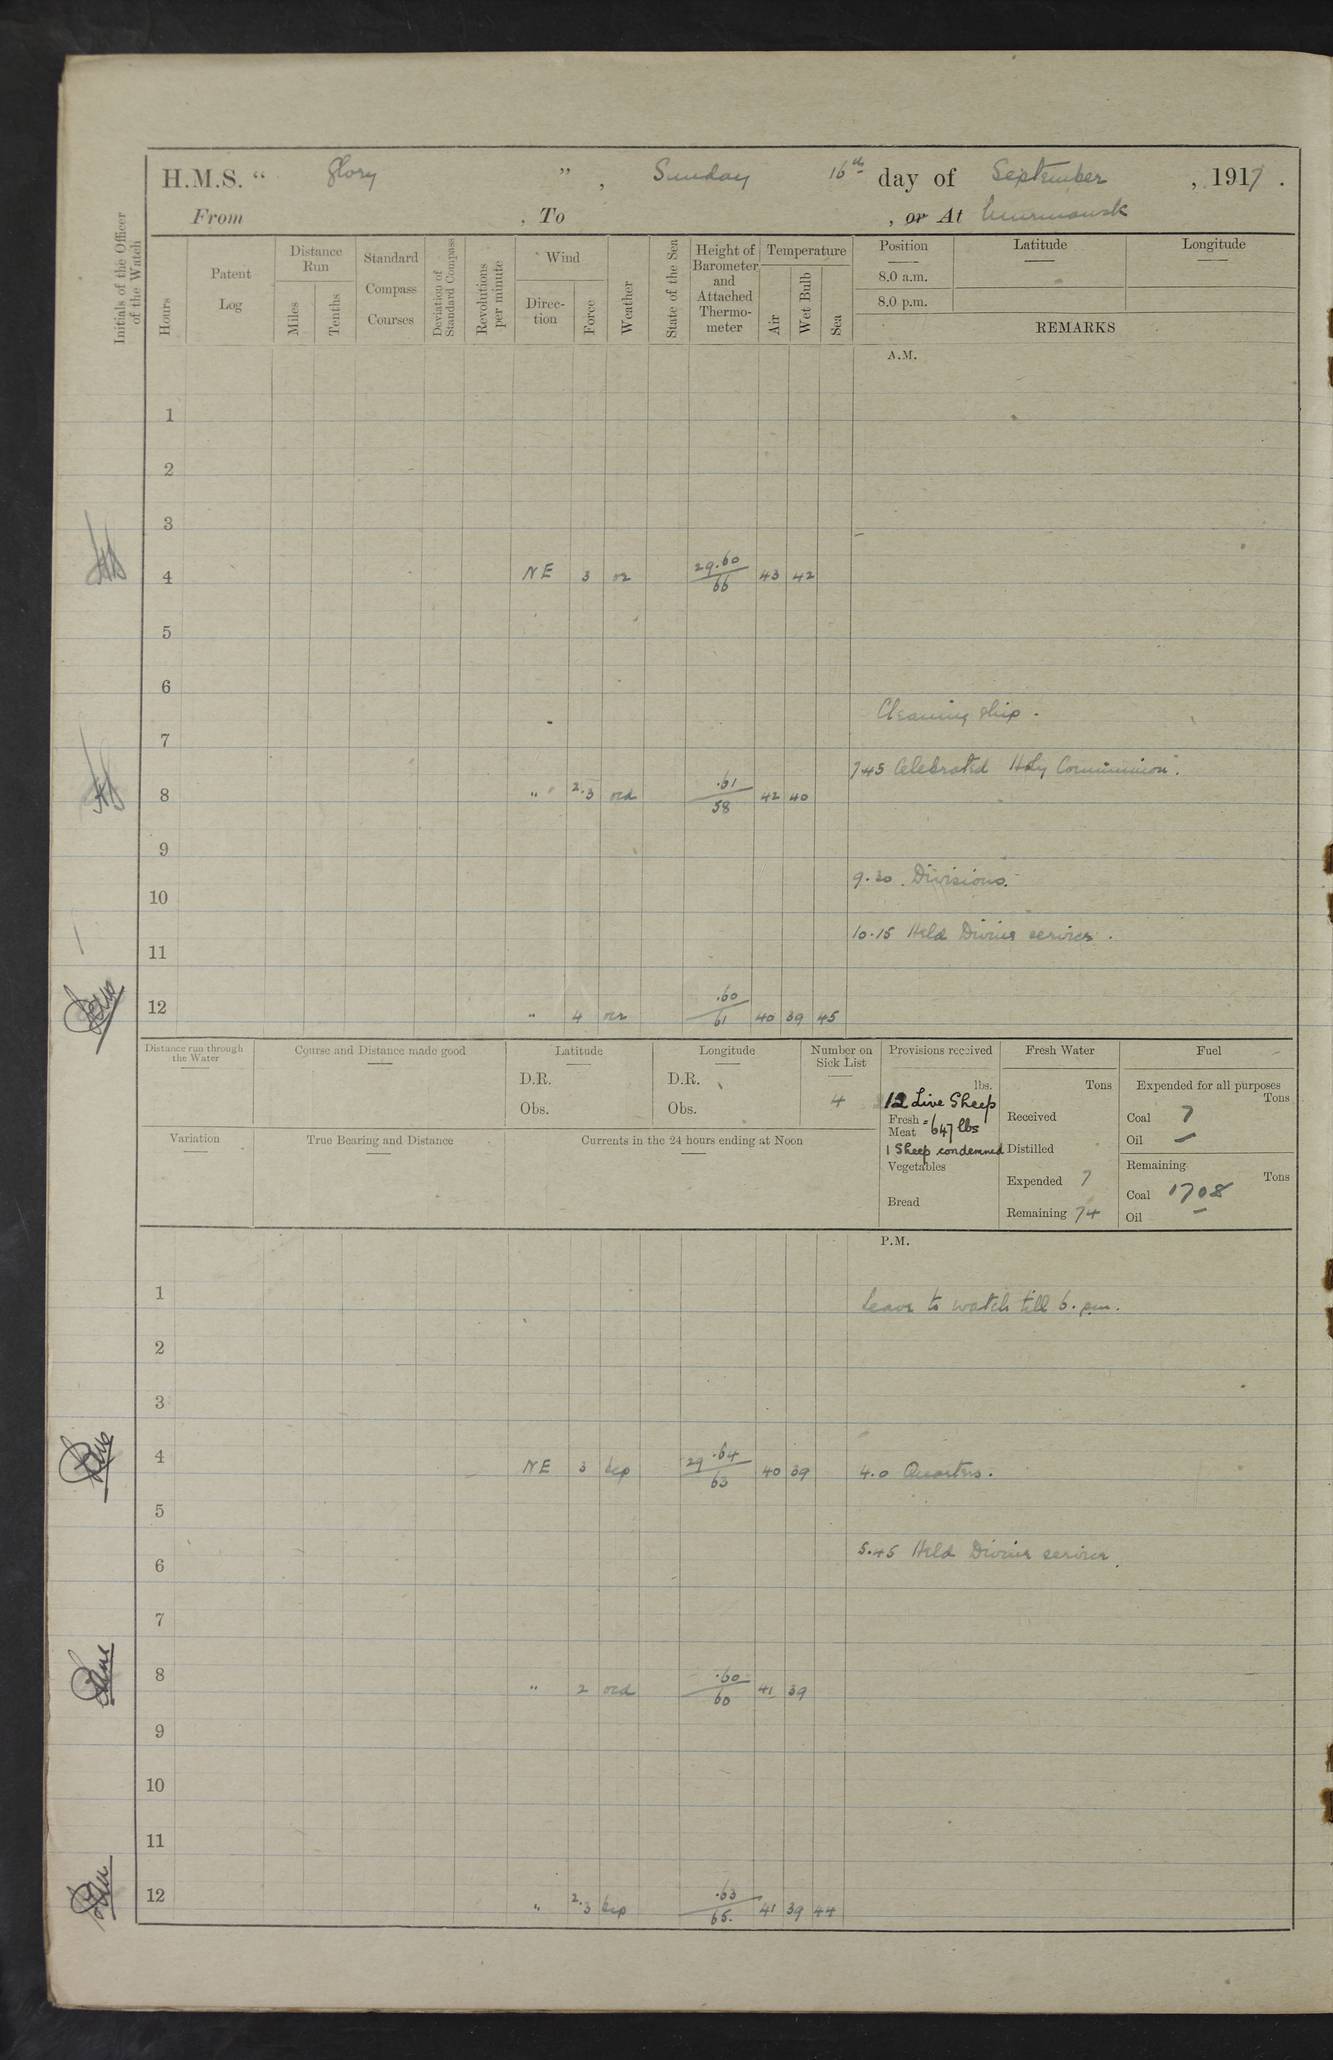 H.M.S. “ Glory ” , Sunday 16th day of September , 1917 .
From , To , or At Murmansk
Initials of the Officer of the Watch
Hours
Patent Log
Distance Run
Miles
Tenths
Standard Compass Courses
Deviation of Standard Compass
Revolutions per minute
Wind
Direc-tion
Force
Weather
State of the Sea
Height of Barometer and Attached Thermo-meter
Temperature
Air
Wet Bulb
Sea
Position Latitude Longitude
8.0 a.m.
8.0 p.m.
REMARKS
A.M.
1
2
3
4 NE 3 or 29.60/66 43 42
5
6
Cleaning ship .
7
7.45 Celebrated Holy Communion.
8 " 2.3 ord .61/58 42 40
9
9.30 . Divisions.
10
10.15 Held Divine service .
11
12 " 4 or .60/61 40 39 45
Distance run through the Water
Course and Distance made good
Latitude
D.R.
Obs.
Longitude
D.R.
Obs.
Number on Sick List
4
Variation
True Bearing and Distance
Currents in the 24 hours ending at Noon
Provisions received
lbs.
12 Live Sheep
Fresh Meat = 647 lbs
1 Sheep condemned
Vegetables
Bread
Fresh Water
Tons
Received
Distilled
Expended 7
Remaining 74
Fuel
Expended for all purposes
Tons
Coal 7
Oil —
Remaining
Tons
Coal 1708
Oil —
P.M.
1
Leave to watch till 6. pm.
2
3
4 NE 3 bcp 29.64/63 40 39 4.0 Quarters.
5
5.45 Held Divine service.
6
7
8 " 2 ord .60/60 41 39
9
10
11
12 " 2.3 bcp .63/65. 41 39 44